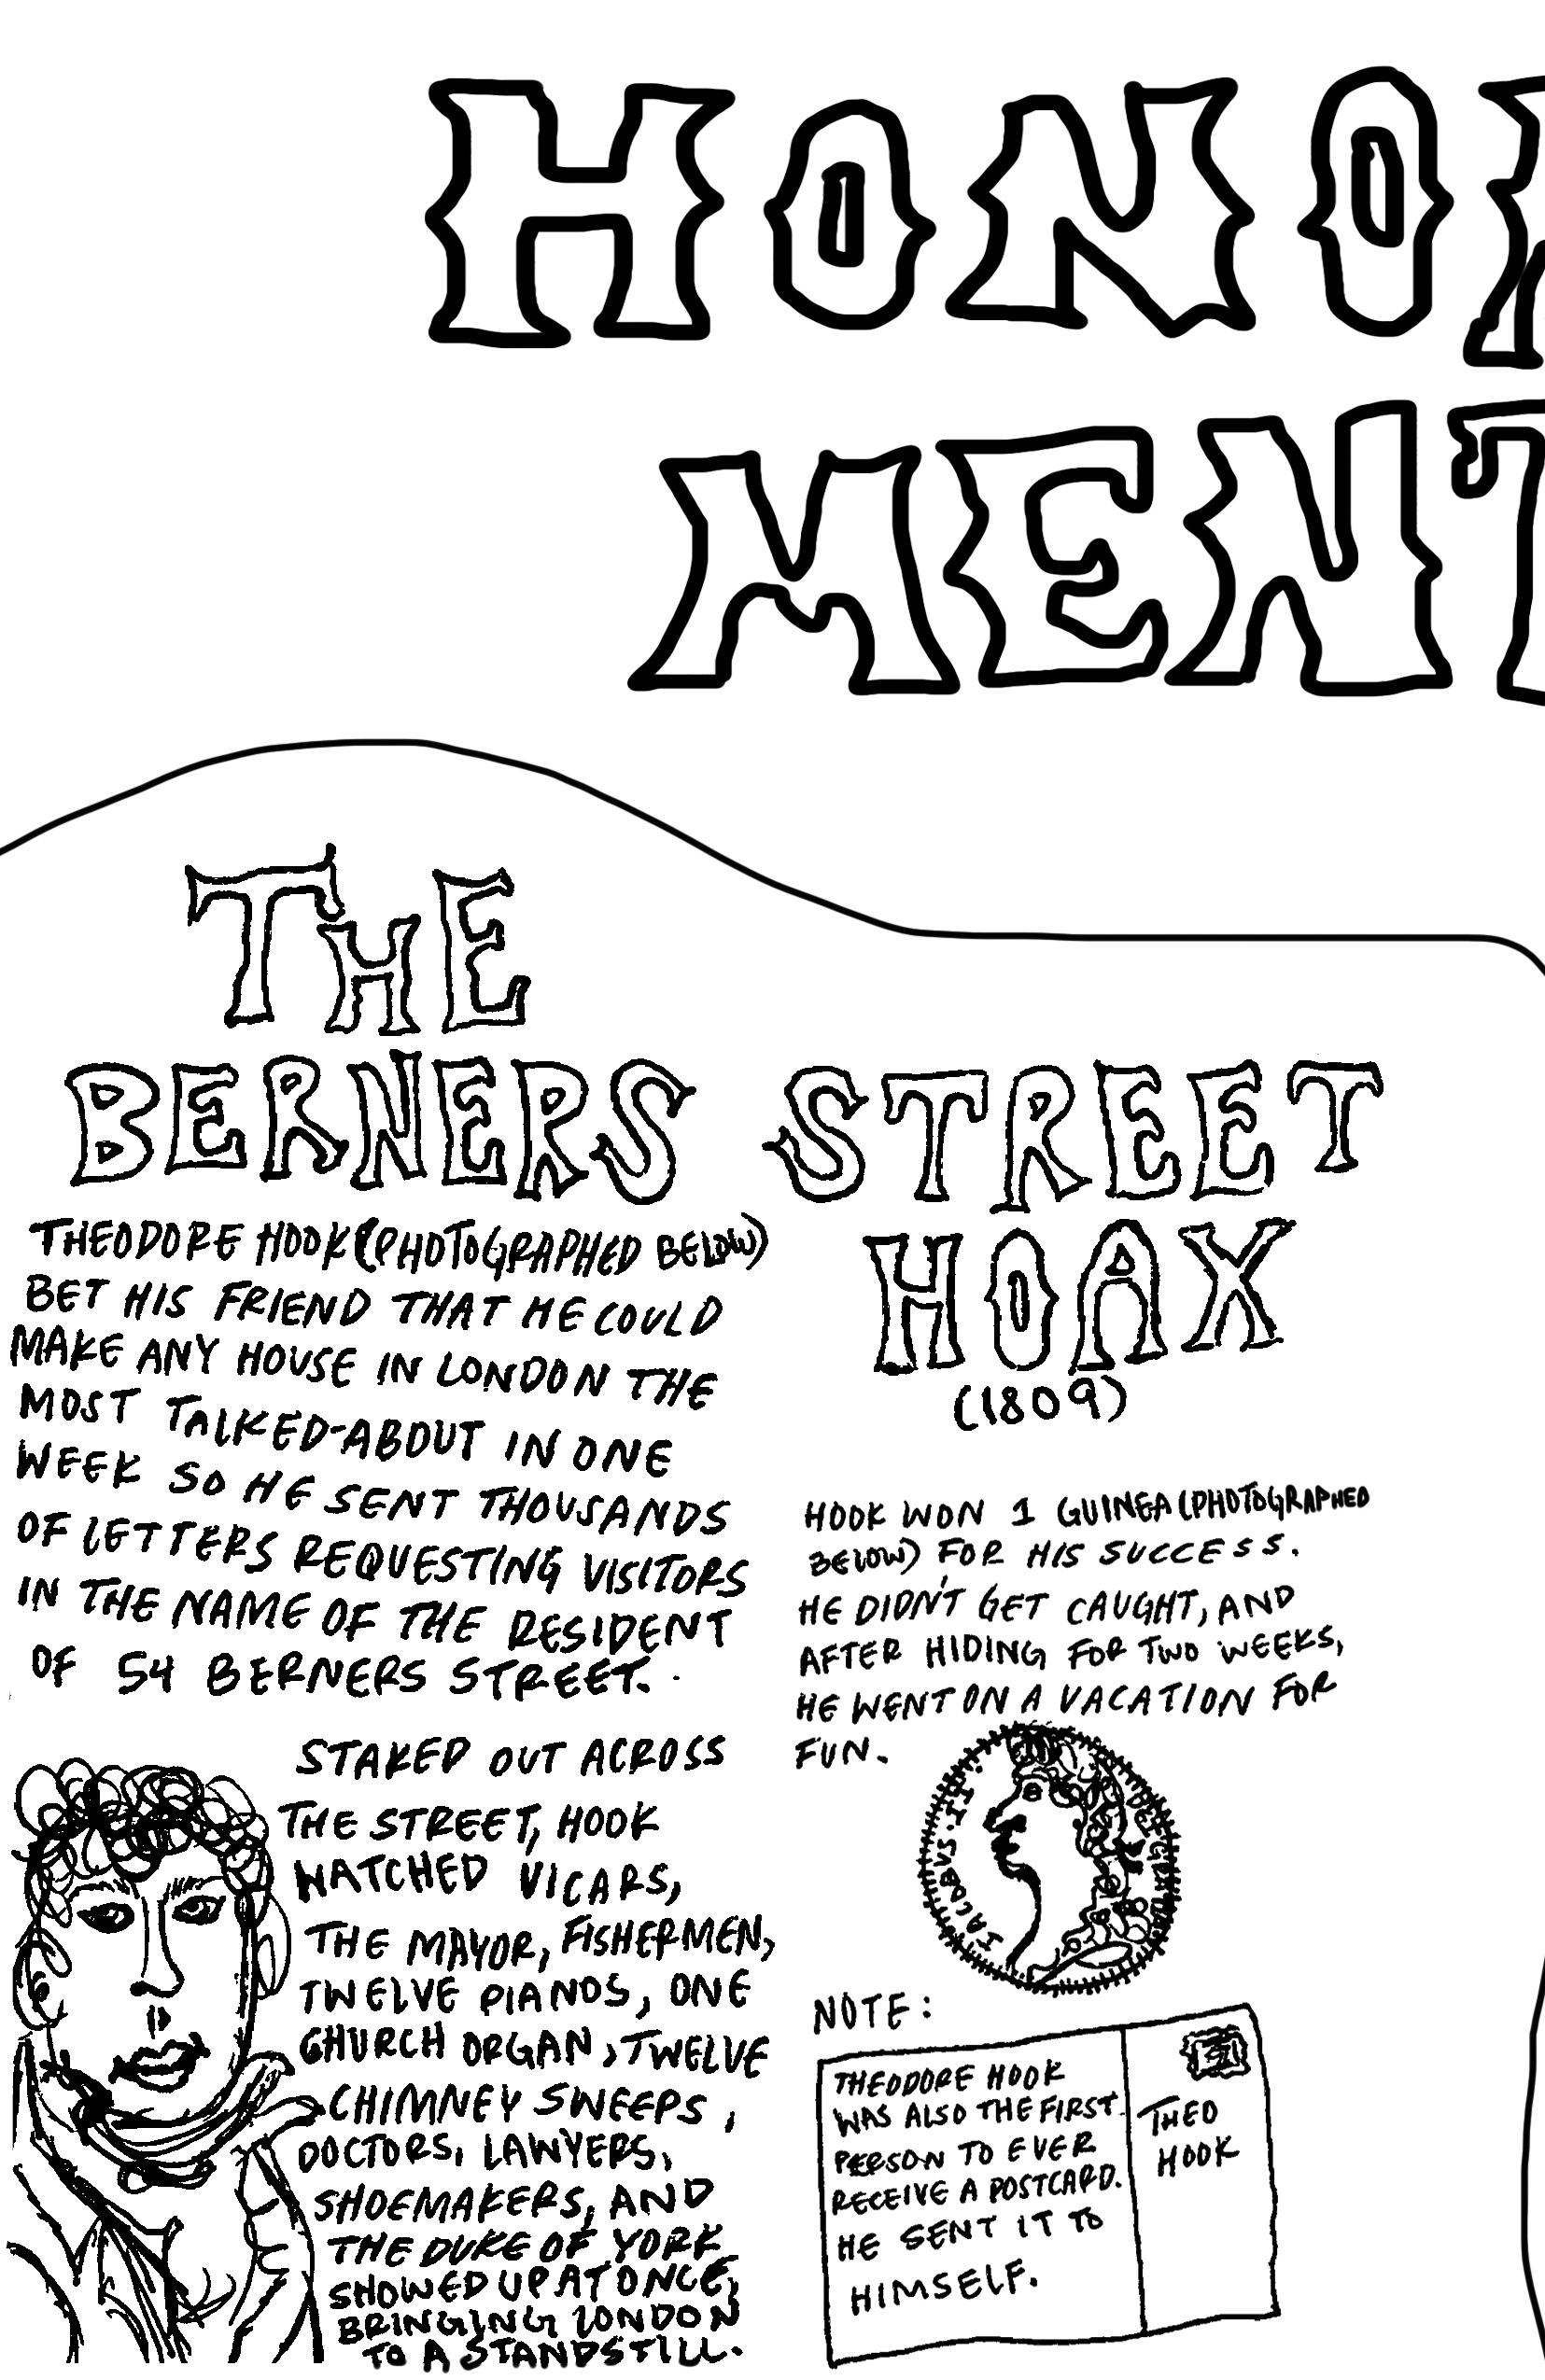 HONO
MENT
THE
BERNERS STREET
HOAX
(1809)
THEODORE HOOK (PHOTOGRAPHED BELOW)
BET HIS FRIEND THAT HE COULD
MAKE ANY HOUSE IN LONDON THE
MOST TALKED-ABOUT IN ONE
WEEK SO HE SENT THOUSANDS
OF LETTERS REQUESTING VISITORS
IN THE NAME OF THE RESIDENT
OF 54 BERNERS STREET.
STAKED OUT ACROSS
THE STREET, HOOK
WATCHED VICARS,
THE MAYOR, FISHERMEN,
TWELVE PIANOS, ONE
CHURCH ORGAN, TWELVE
CHIMNEY SWEEPS,
DOCTORS, LAWYERS,
SHOEMAKERS, AND
THE DUKE OF YORK
SHOWED UP AT ONCE,
BRINGING LONDON
TO A STANDSTILL.
HOOK WON 1 GUINEA (PHOTOGRAPHED
BELOW) FOR HIS SUCCESS.
HE DIDN'T GET CAUGHT, AND
AFTER HIDING FOR TWO WEEKS,
HE WENT ON A VACATION FOR
FUN.
IACOBVS·II·
NOTE:
THEODORE HOOK
WAS ALSO THE FIRST
PERSON TO EVER
RECEIVE A POSTCARD.
HE SENT IT TO
HIMSELF.
THEO
HOOK